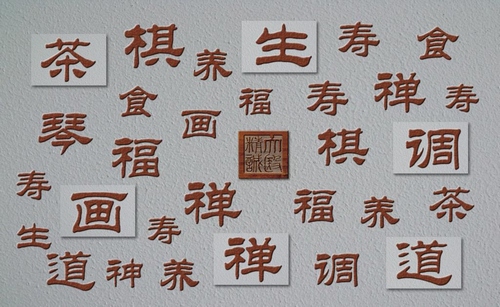 茶 棋 养 生 寿 食
食 福 寿 禅 寿
琴 福 画 大醫精誠 棋 调
寿 画 禅 福 养 茶
生 寿
道 神 养 禅 调 道